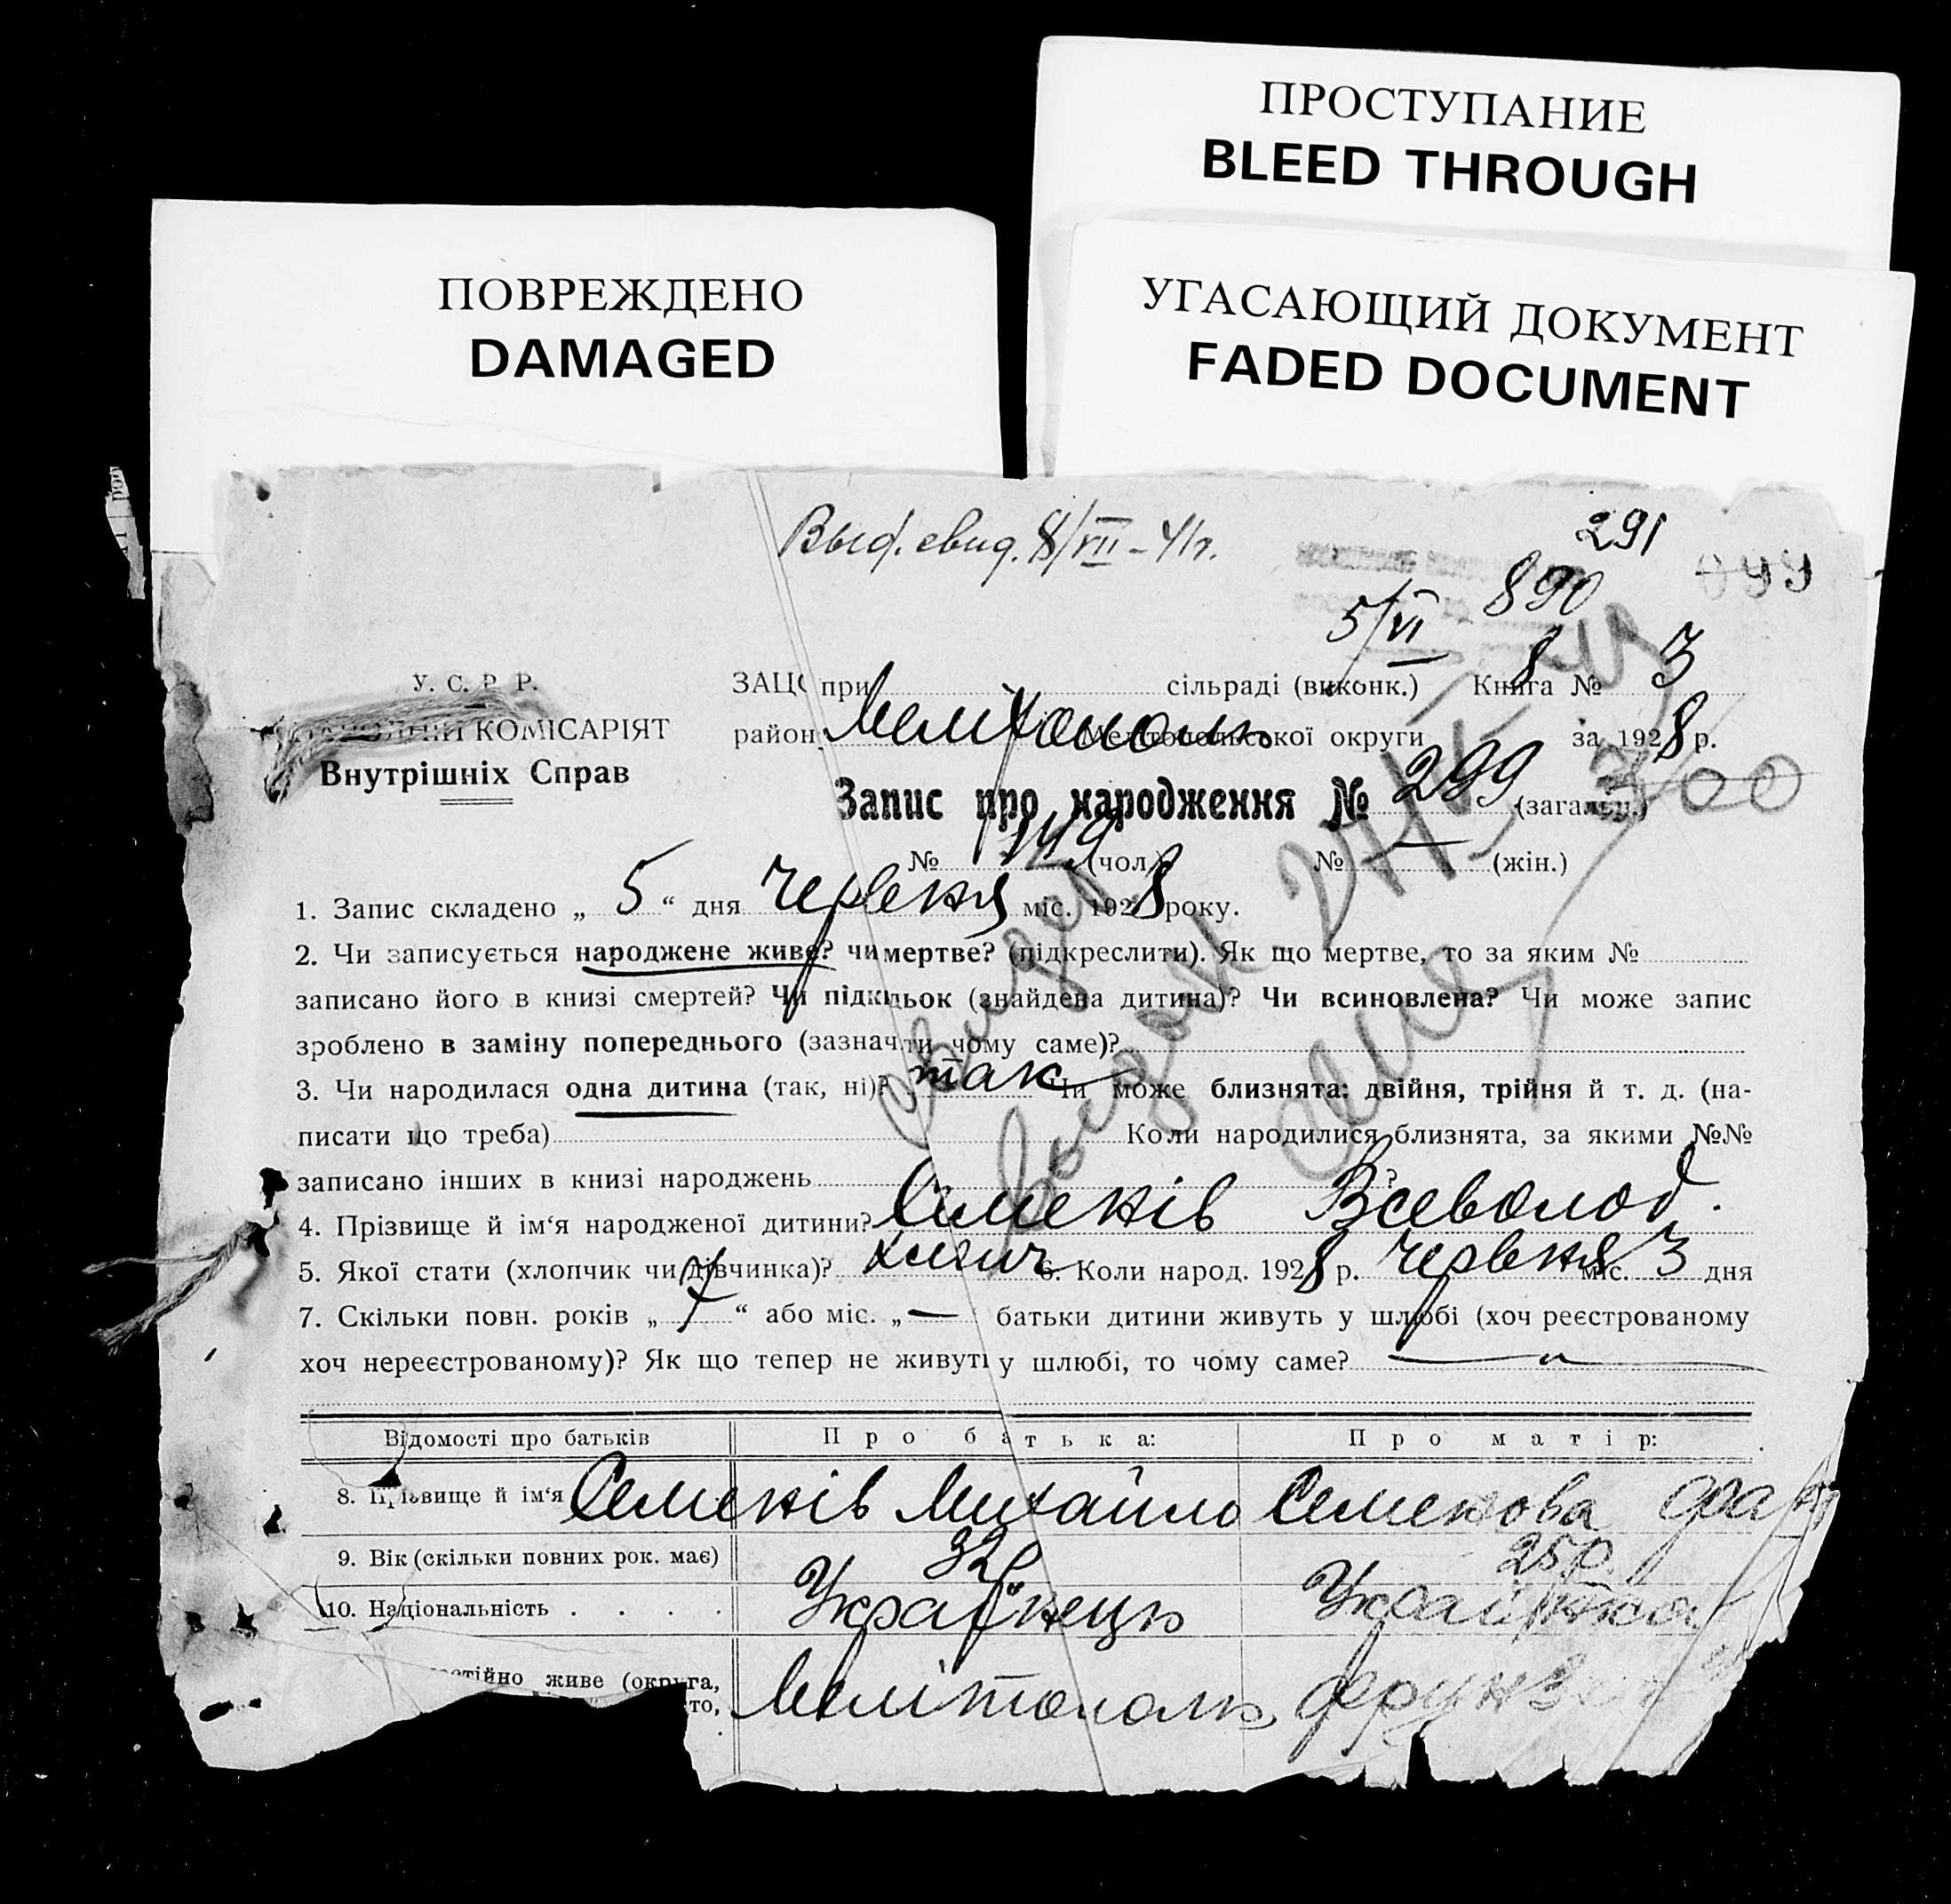 ПРОСТУПАНИЕ
BLEED THROUGH
ПОВРЕЖДЕНО
DAMAGED
УГАСАЮЩИЙ ДОКУМЕНТ
FADED DOCUMENT
Выд. свид. 8/VII – 41 г.
291
890
5/VI
8 3
У. С. Р. Р.
ЗАЦС при сільраді (виконк.) Книга №
КОМІСАРІЯТ
район Мелітополь Мелітопольської округи за 1928 р.
Внутрішніх Справ
Запис про народження № 299 (загальн.) 300
№ 149 (чол.) № — (жін.)
1. Запис складено „ 5 “ дня червня міс. 1928 року.
2. Чи записується народжене живе? чи мертве? (підкреслити). Як що мертве, то за яким №
записано його в книзі смертей? Чи підкільок (знайдена дитина)? Чи всиновлена? Чи може запис
зроблено в заміну попереднього (зазначити чому саме)?
3. Чи народилася одна дитина (так, ні)? так Чи може близнята: двійня, трійня й т. д. (на-
писати що треба) Коли народилися близнята, за якими №№
записано інших в книзі народжень ?
4. Прізвище й ім‘я народженої дитини? Семенів Всеволод.
5. Якої стати (хлопчик чи дівчинка)? 6. Коли народ. 1928 р. червня міс. 3 дня
7. Скільки повн. років „ “ або міс. „ — “ батьки дитини живуть у шлюбі (хоч реєстрованому
хоч нереєстрованому)? Як що тепер не живуть у шлюбі, то чому саме?
Відомості про батьків Про батька: Про матір:
8. Прізвище й ім‘я Семенів Михайло Семенова
9. Вік (скільки повних рок. має) 32 р 25 р.
10. Національність . . . . Українець Українка
стійно живе (округа,
то, Мелітополь